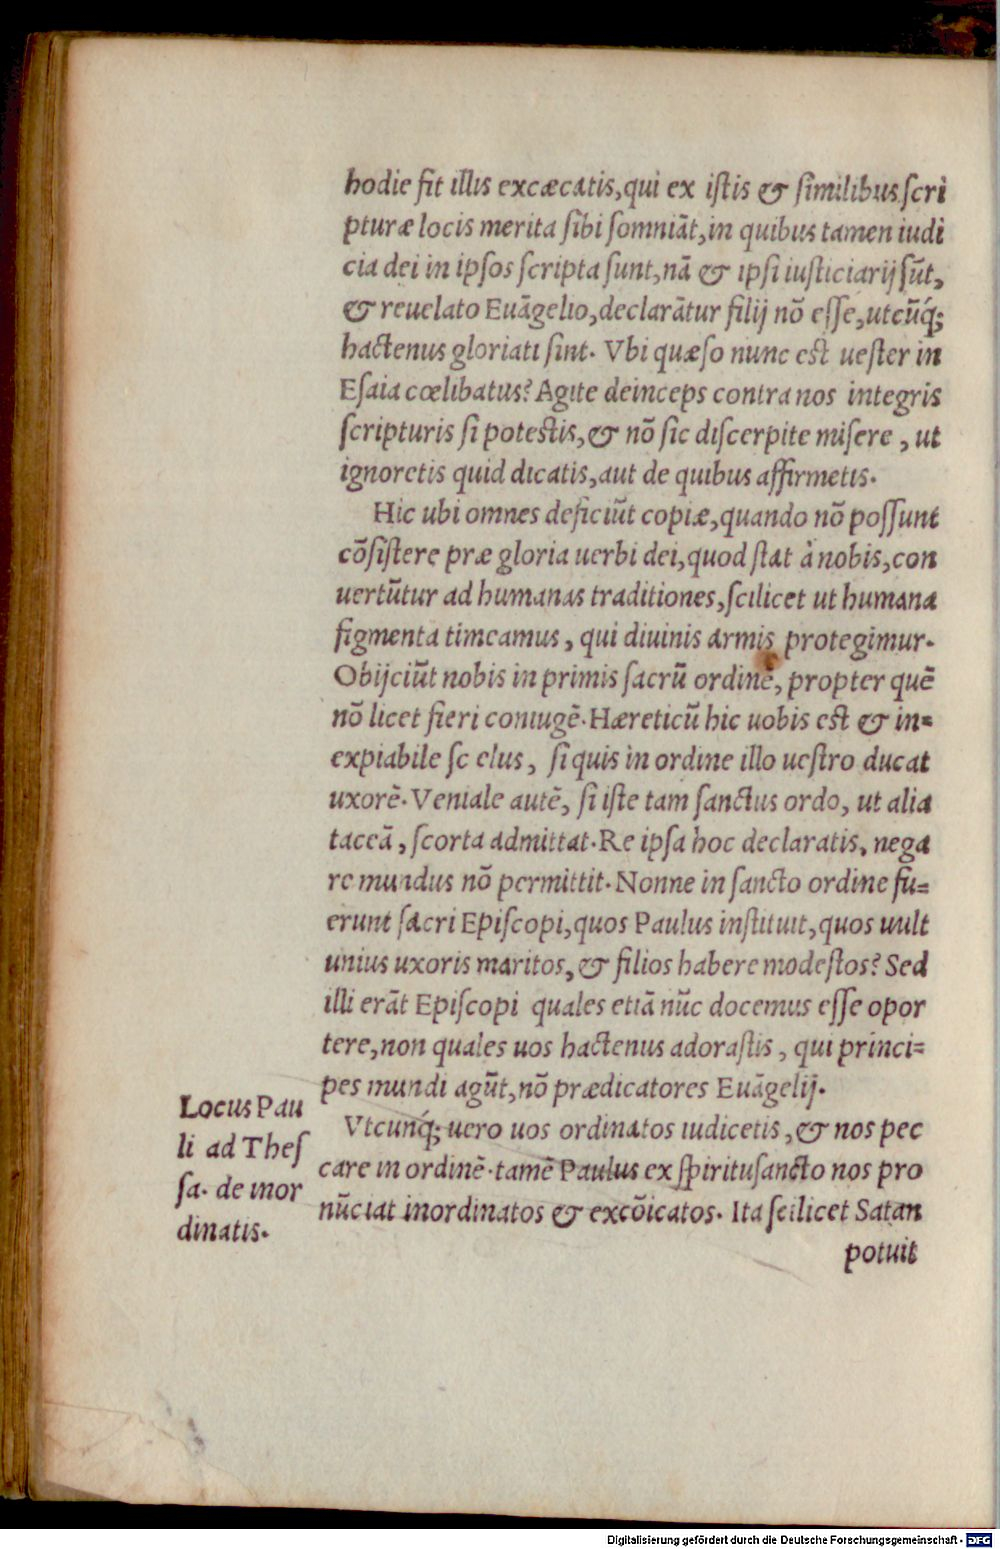 hodie fit illis excæcatis, qui ex istis & similibus scri
pturæ locis merita sibi somniãt, in quibus tamen iudi
cia dei in ipsos scripta sunt, nã & ipsi iusticiarij sũt,
& reuelato Euãgelio, declarãtur filij nõ esse, utcũq́;
hactenus gloriati sint. Vbi quæso nunc est uester in
Esaia cœlibatus? Agite deinceps contra nos integris
scripturis si potestis, & nõ sic discerpite misere, ut
ignoretis quid dicatis, aut de quibus affirmetis.
Hic ubi omnes deficiũt copiæ, quando nõ possunt
cõsistere præ gloria uerbi dei, quod stat à nobis, con
uertũtur ad humanas traditiones, scilicet ut humana
figmenta timeamus, qui diuinis armis protegimur.
Obijciũt nobis in primis sacrũ ordinẽ, propter quẽ
nõ licet fieri coniugẽ. Hæreticũ hic uobis est & in=
expiabile sc elus, si quis in ordine illo uestro ducat
uxorẽ. Veniale autẽ, si iste tam sanctus ordo, ut alia
taceã, scorta admittat. Re ipsa hoc declaratis, nega
re mundus nõ permittit. Nonne in sancto ordine fu=
erunt sacri Episcopi, quos Paulus instituit, quos uult
unius uxoris maritos, & filios habere modestos? Sed
illi erãt Episcopi quales etiã nũc docemus esse opor
tere, non quales uos hactenus adorastis, qui princi=
pes mundi agũt, nõ prædicatores Euãgelij.
Vtcunq́; uero uos ordinatos iudicetis, & nos pec
care in ordinẽ. tamẽ Paulus ex spiritusancto nos pro
nũciat inordinatos & excõicatos. Ita scilicet Satan
potuit
Locus Pau
li ad Thes
sa. de inor
dinatis.
Digitalisierung gefördert durch die Deutsche Forschungsgemeinschaft - DFG